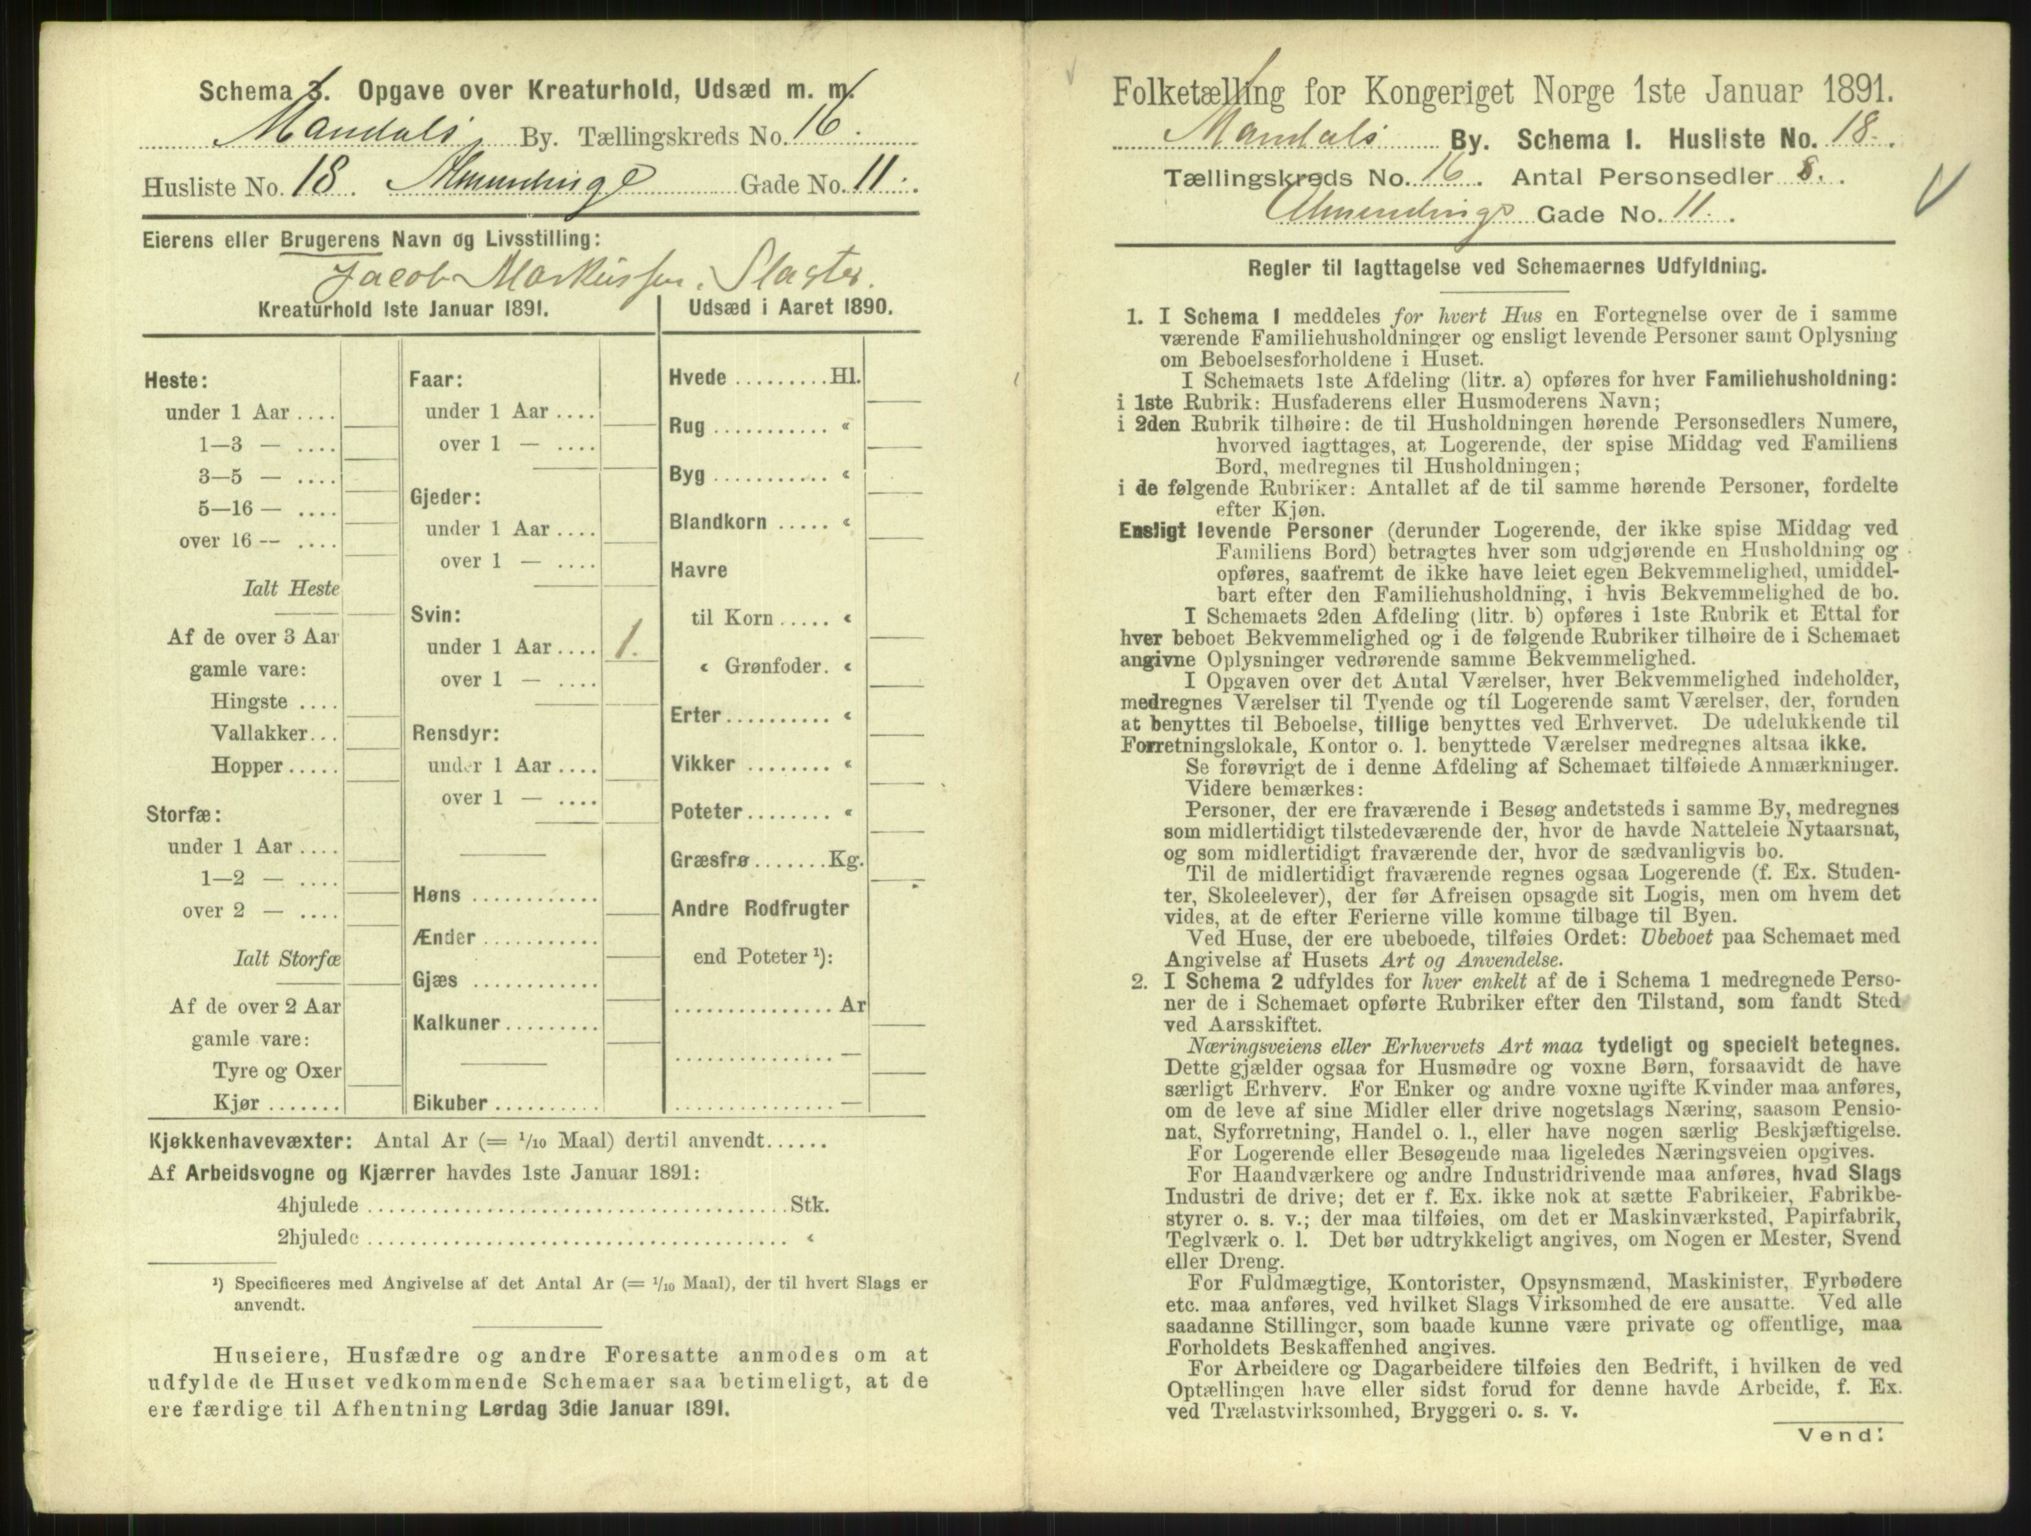 Schema 3. Opgave over Kreaturhold, Udsæd m. m.
Mandals By. Tællingskreds No. 16.
Husliste No. 18. Almendings Gade No. 11.
Eierens eller Brugerens Navn og Livsstilling:
Jacob Markussen, Slagter.
Kreaturhold 1ste Januar 1891.
Heste:
under 1 Aar ....
1—3 — ....
3—5 — ....
5—16 — ....
over 16 — ....
Ialt Heste
Af de over 3 Aar
gamle vare:
Hingste ....
Vallakker...
Hopper.....
Storfæ:
under 1 Aar ....
1—2 — ....
over 2 — ....
Ialt Storfæ
Af de over 2 Aar
gamle vare:
Tyre og Oxer
Kjør .......
Faar:
under 1 Aar ....
over 1 — ....
Gjeder:
under 1 Aar ....
over 1 — ....
Svin:
under 1 Aar .... 1.
over 1 — ....
Rensdyr:
under 1 Aar ....
over 1 — ....
Høns ............
Ænder ...........
Gjæs ............
Kalkuner.........
Bikuber ..........
Udsæd i Aaret 1890.
Hvede .........Hl.
Rug ........... «
Byg ........... «
Blandkorn ..... «
Havre
til Korn ..... «
« Grønfoder. «
Erter.......... «
Vikker ........ «
Poteter........ «
Græsfrø.......Kg.
Andre Rodfrugter
end Poteter ¹):
...............Ar
...............—
...............—
Kjøkkenhavevæxter: Antal Ar (= 1/10 Maal) dertil anvendt......
Af Arbeidsvogne og Kjærrer havdes 1ste Januar 1891:
4hjulede ......................................Stk.
2hjulede ...................................... «
¹) Specificeres med Angivelse af det Antal Ar (= 1/10 Maal), der til hvert Slags er
anvendt.
Huseiere, Husfædre og andre Foresatte anmodes om at
udfylde de Huset vedkommende Schemaer saa betimeligt, at de
ere færdige til Afhentning Lørdag 3die Januar 1891.
Folketælling for Kongeriget Norge 1ste Januar 1891.
Mandals By. Schema I. Husliste No. 18.
Tællingskreds No. 16. Antal Personsedler 8.
Almendings Gade No. 11.
Regler til Iagttagelse ved Schemaernes Udfyldning.
1. I Schema 1 meddeles for hvert Hus en Fortegnelse over de i samme
værende Familiehusholdninger og ensligt levende Personer samt Oplysning
om Beboelsesforholdene i Huset.
I Schemaets 1ste Afdeling (litr. a) opføres for hver Familiehusholdning:
i 1ste Rubrik: Husfaderens eller Husmoderens Navn;
i 2den Rubrik tilhøire: de til Husholdningen hørende Personsedlers Numere,
hvorved iagttages, at Logerende, der spise Middag ved Familiens
Bord, medregnes til Husholdningen;
i de følgende Rubriker: Antallet af de til samme hørende Personer, fordelte
efter Kjøn.
Ensligt levende Personer (derunder Logerende, der ikke spise Middag ved
Familiens Bord) betragtes hver som udgjørende en Husholdning og
opføres, saafremt de ikke have leiet egen Bekvemmelighed, umiddel-
bart efter den Familiehusholdning, i hvis Bekvemmelighed de bo.
I Schemaets 2den Afdeling (litr. b) opføres i 1ste Rubrik et Ettal for
hver beboet Bekvemmelighed og i de følgende Rubriker tilhøire de i Schemaet
angivne Oplysninger vedrørende samme Bekvemmelighed.
I Opgaven over det Antal Værelser, hver Bekvemmelighed indeholder,
medregnes Værelser til Tyende og til Logerende samt Værelser, der, foruden
at benyttes til Beboelse, tillige benyttes ved Erhvervet. De udelukkende til
Forretningslokale, Kontor o. l. benyttede Værelser medregnes altsaa ikke.
Se forøvrigt de i denne Afdeling af Schemaet tilføiede Anmærkninger.
Videre bemærkes:
Personer, der ere fraværende i Besøg andetsteds i samme By, medregnes
som midlertidigt tilstedeværende der, hvor de havde Natteleie Nytaarsnat,
og som midlertidigt fraværende der, hvor de sædvanligvis bo.
Til de midlertidigt fraværende regnes ogsaa Logerende (f. Ex. Studen-
ter, Skoleelever), der før Afreisen opsagde sit Logis, men om hvem det
vides, at de efter Ferierne ville komme tilbage til Byen.
Ved Huse, der ere ubeboede, tilføies Ordet: Ubeboet paa Schemaet med
Angivelse af Husets Art og Anvendelse.
2. I Schema 2 udfyldes for hver enkelt af de i Schema 1 medregnede Perso-
ner de i Schemaet opførte Rubriker efter den Tilstand, som fandt Sted
ved Aarsskiftet.
Næringsveiens eller Erhvervets Art maa tydeligt og specielt betegnes.
Dette gjælder ogsaa for Husmødre og voxne Børn, forsaavidt de have
særligt Erhverv. For Enker og andre voxne ugifte Kvinder maa anføres,
om de leve af sine Midler eller drive nogetslags Næring, saasom Pensio-
nat, Syforretning, Handel o. l., eller have nogen særlig Beskjæftigelse.
For Logerende eller Besøgende maa ligeledes Næringsveien opgives.
For Haandværkere og andre Industridrivende maa anføres, hvad Slags
Industri de drive; det er f. Ex. ikke nok at sætte Fabrikeier, Fabrikbe-
styrer o. s. v.; der maa tilføies, om det er Maskinværksted, Papirfabrik,
Teglværk o. l. Det bør udtrykkeligt angives, om Nogen er Mester, Svend
eller Dreng.
For Fuldmægtige, Kontorister, Opsynsmænd, Maskinister, Fyrbødere
etc. maa anføres, ved hvilket Slags Virksomhed de ere ansatte. Ved alle
saadanne Stillinger, som baade kunne være private og offentlige, maa
Forholdets Beskaffenhed angives.
For Arbeidere og Dagarbeidere tilføies den Bedrift, i hvilken de ved
Optællingen have eller sidst forud for denne havde Arbeide, f. Ex.
ved Trælastvirksomhed, Bryggeri o. s. v.
Vend!